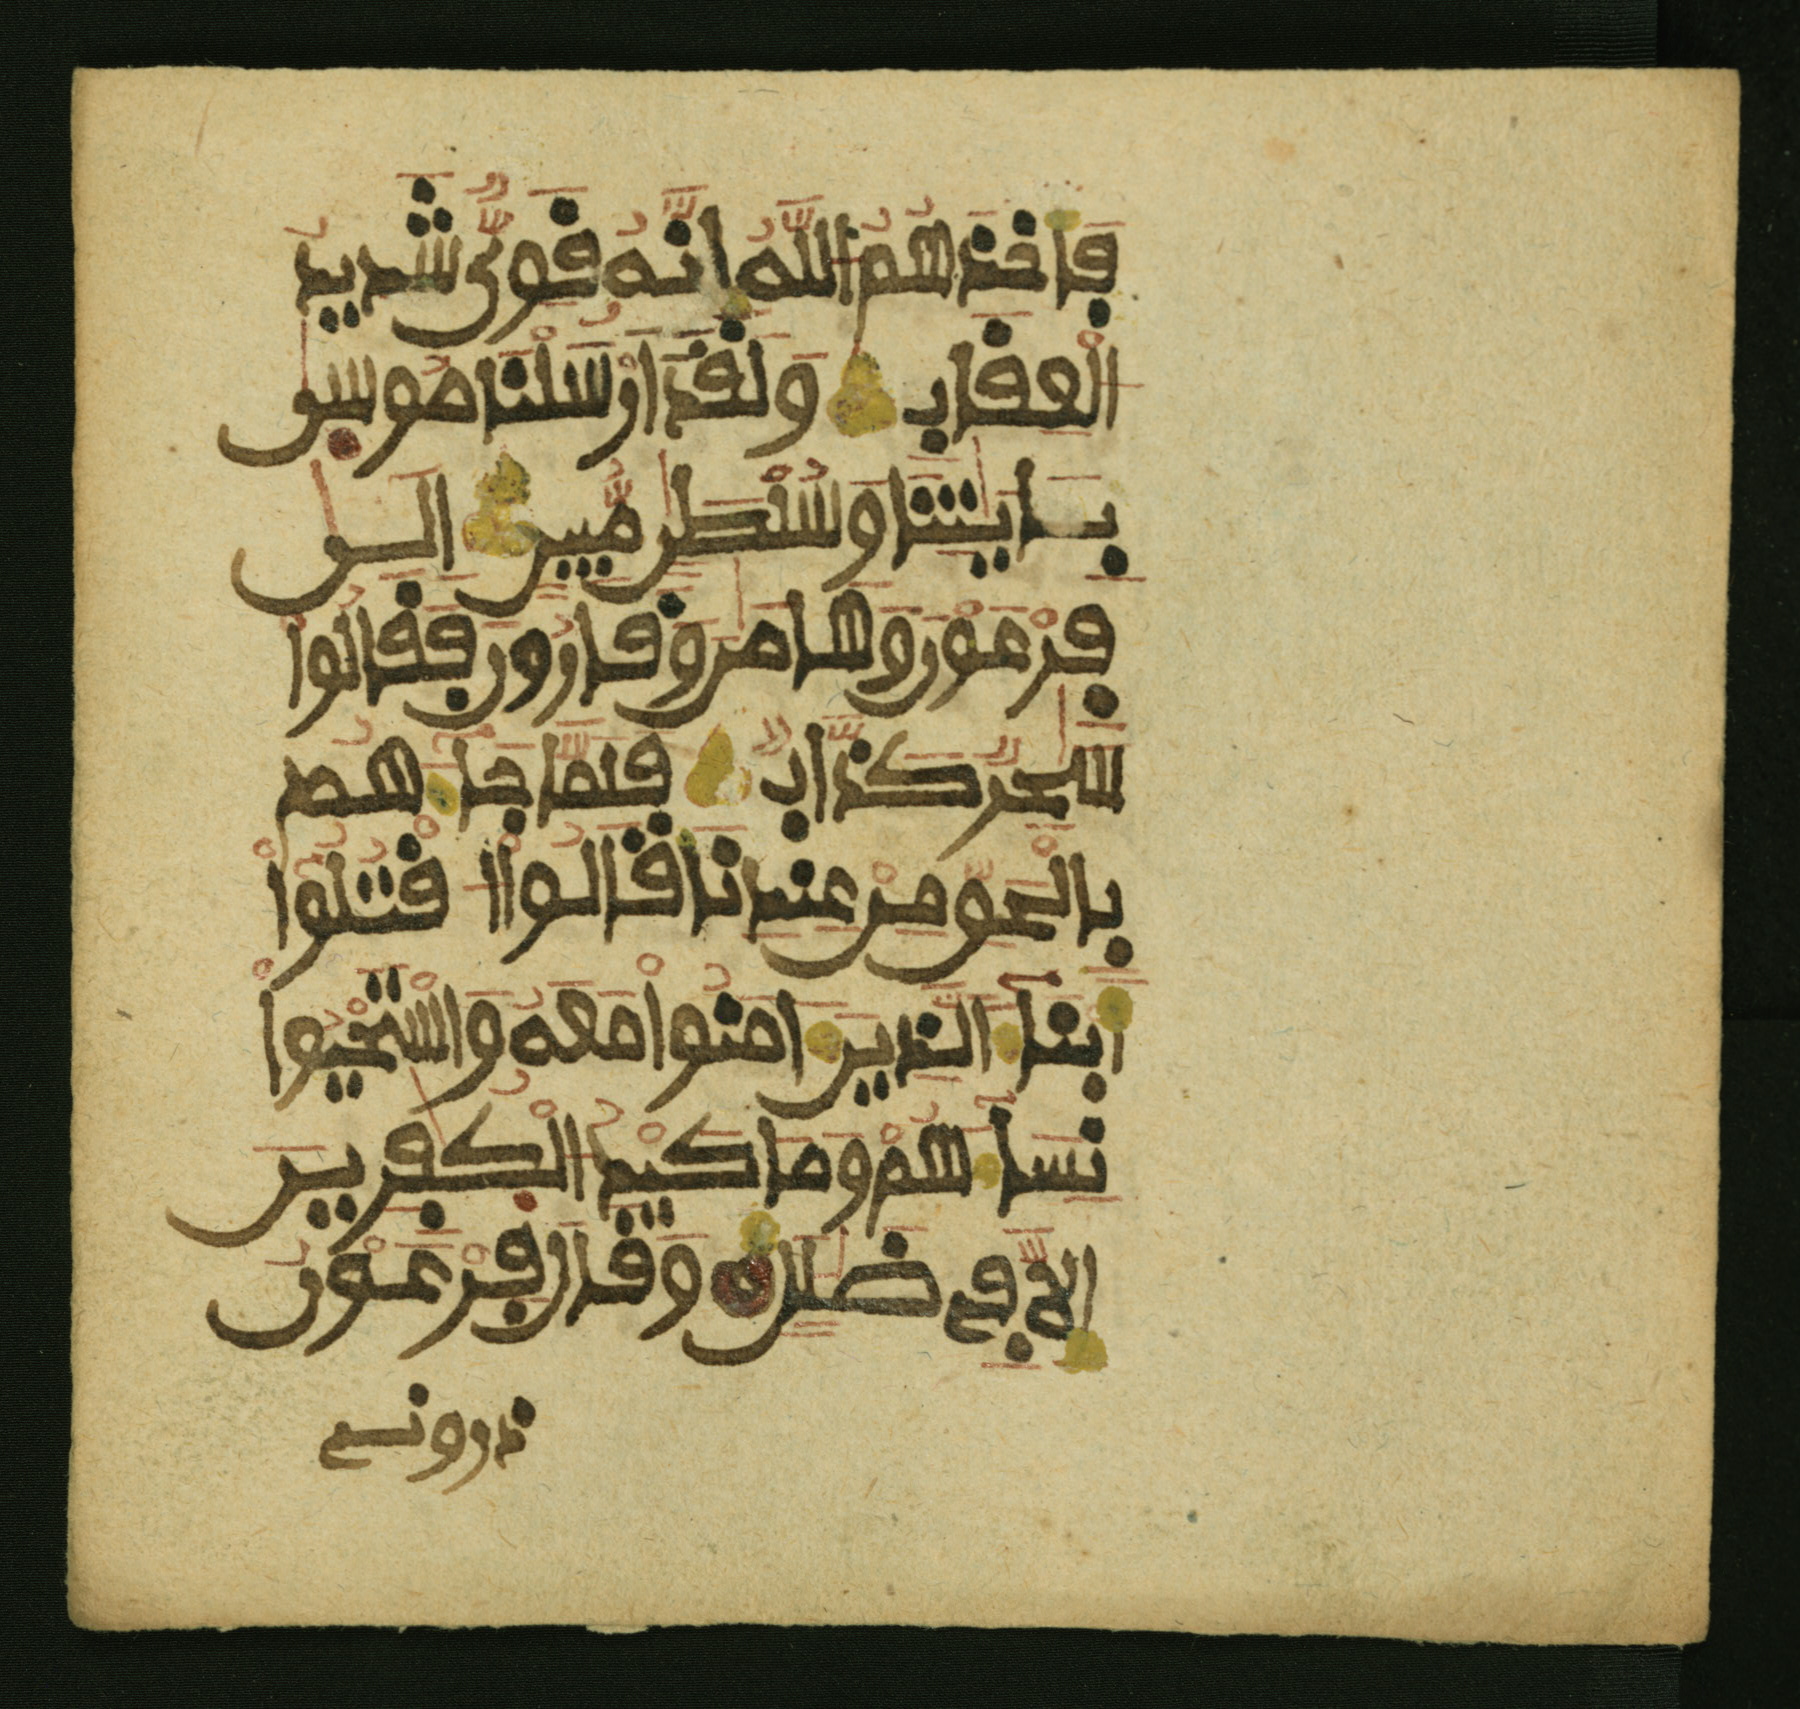 فَأَخَذَهُمُ اللَّهُ إِنَّهُ قَوِيٌّ شَدِيدُ
الْعِقَابِ وَلَقَدْ أَرْسَلْنَا مُوسَىٰ
بِـَٔايَٰتِنَا وَسُلْطَٰنٍ مُّبِينٍ إِلَىٰ
فِرْعَوْنَ وَهَٰمَٰنَ وَقَٰرُونَ فَقَالُوا
سَٰحِرٌ كَذَّابٌ فَلَمَّا جَآءَهُم
بِالْحَقِّ مِنْ عِندِنَا قَالُوا اقْتُلُوا
أَبْنَآءَ الَّذِينَ ءَامَنُوا مَعَهُ وَاسْتَحْيُوا
نِسَآءَهُمْ وَمَا كَيْدُ الْكَٰفِرِينَ
إِلَّا فِي ضَلَٰلٍ وَقَالَ فِرْعَوْنُ
ذَرُونِي